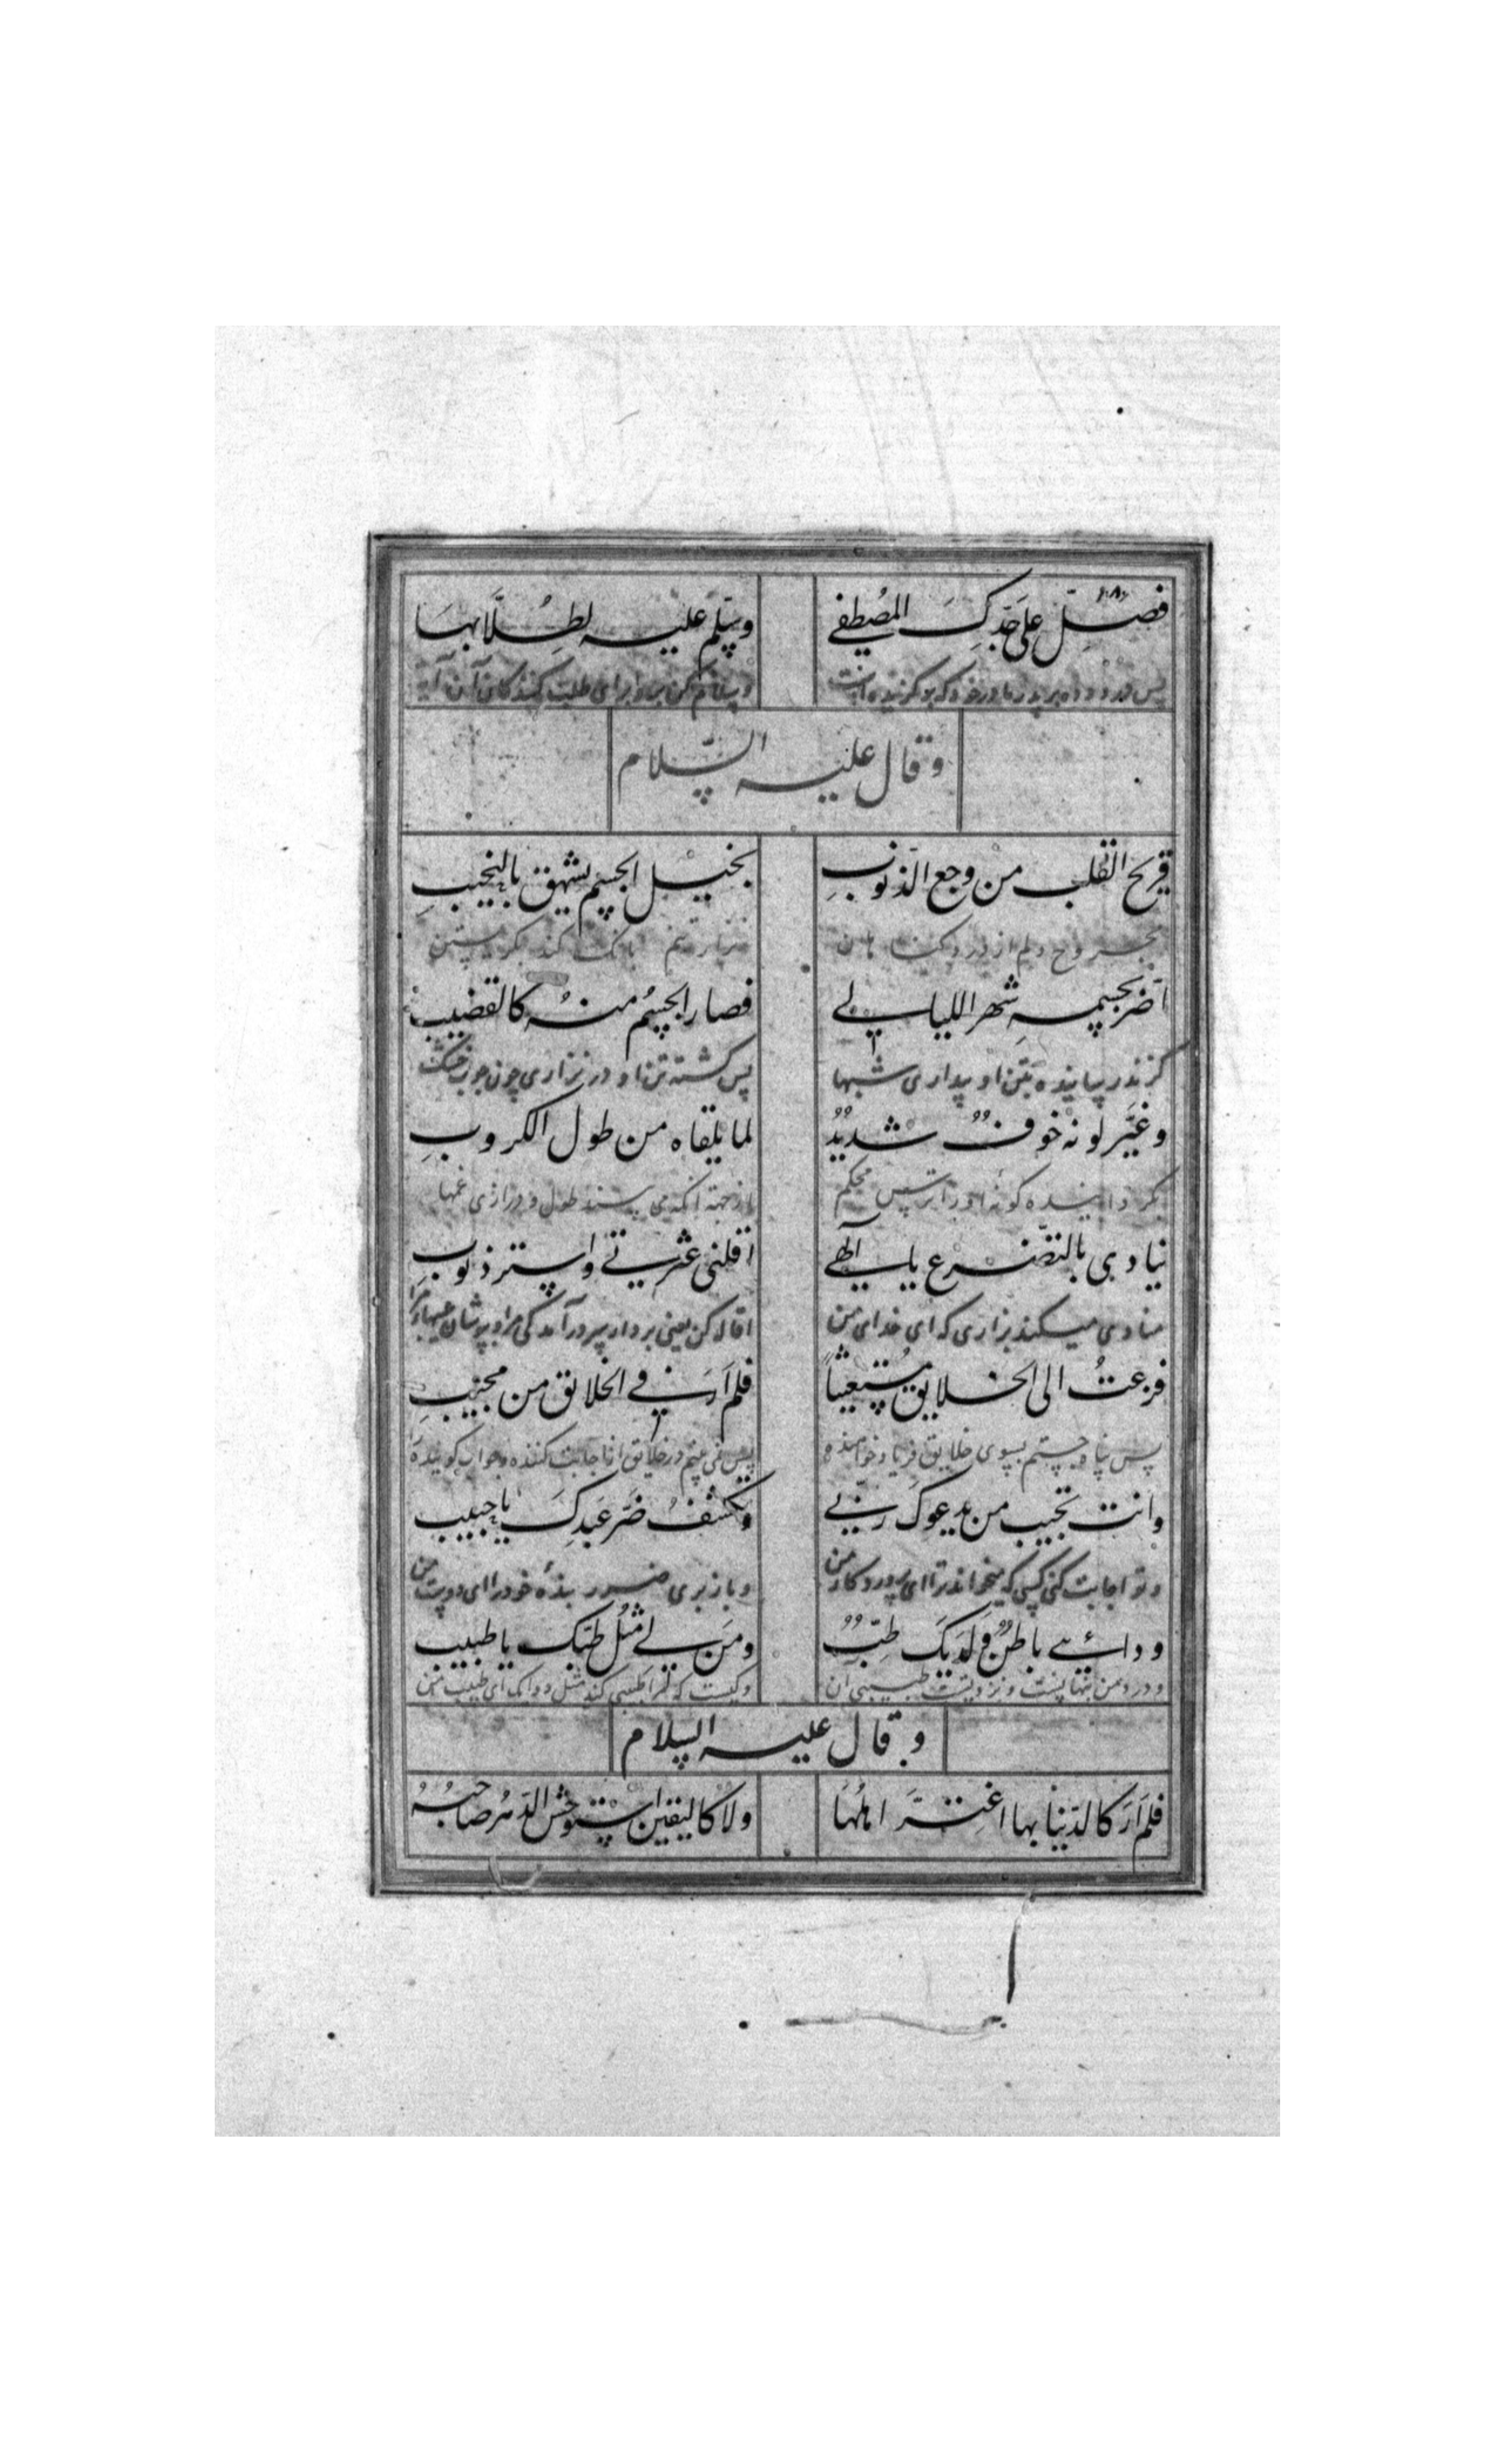 فصلّ علی جدک المصطفے وسلّم علیه لطلّابها
پس درود ده بر پدر مادر خود که برگزیده است وسلام کن برو برای طلب کنندگان آن
وقال علیه السّلام
قریح القلب من وجع الذّنوبِ نحیل الجسم یشهق بالنحیبِ
مجروح دلم از درد گناهان نزار تنم بانک کند بگریستن
اَضرّ بجسمهِ سَهر اللیالے فصار الجسمُ منهُ کالقضیبِ
گزند رسانیده بتن او بیداری شبها پس گشته تن او در نزاری چون چوب خشک
وغیَّر لونه خوفٌ شدیدٌ لما یلقاه من طول الکروبِ
بگردانیده گونه او را ترس محکم از جهة آنکه می‌ طول و درازی غمها
ینادی بالتضرّع یا الٓهے اقلنی عثرتے واستر ذنوبے
منادی میکند بزاری که ای خدای من اقاله کن یعنی بردار بسر درآمدکی مرا وبپوشان عیبهاء مرا
فزعتُ الی الخلایق مُستغیثاً فلم اَرَ فے الخلائق من مجیبِ
پس پناه جستم بسوی خلایق فریاد خواهنده پس نمی بینم در خلایق اجابت کننده وجواب گوینده را
وانت تجیب من یدعوکَ ربّے وتکشفُ ضَرّ عَبدکَ یا حبیب
وتو اجابت کنی کسی که میخواند ترا ای پروردکار من وباز بری ضرر بندهٔ خود را ای دوست من
ودائے باطنٌ ولَدیکَ طبٌّ ومَن لے مثلُ طبّک یا طبیب
ودرد من نهانست ونزد تست طبیبی آن وکیست که مرا طبیبی کند مثل ای طبیب من
وقال علیه السلام
فلم اَرَ کالدّنیا بها اغترَّ اهلُهَا ولا کالیقین استوحش الدّهرَ صاحبُهُ